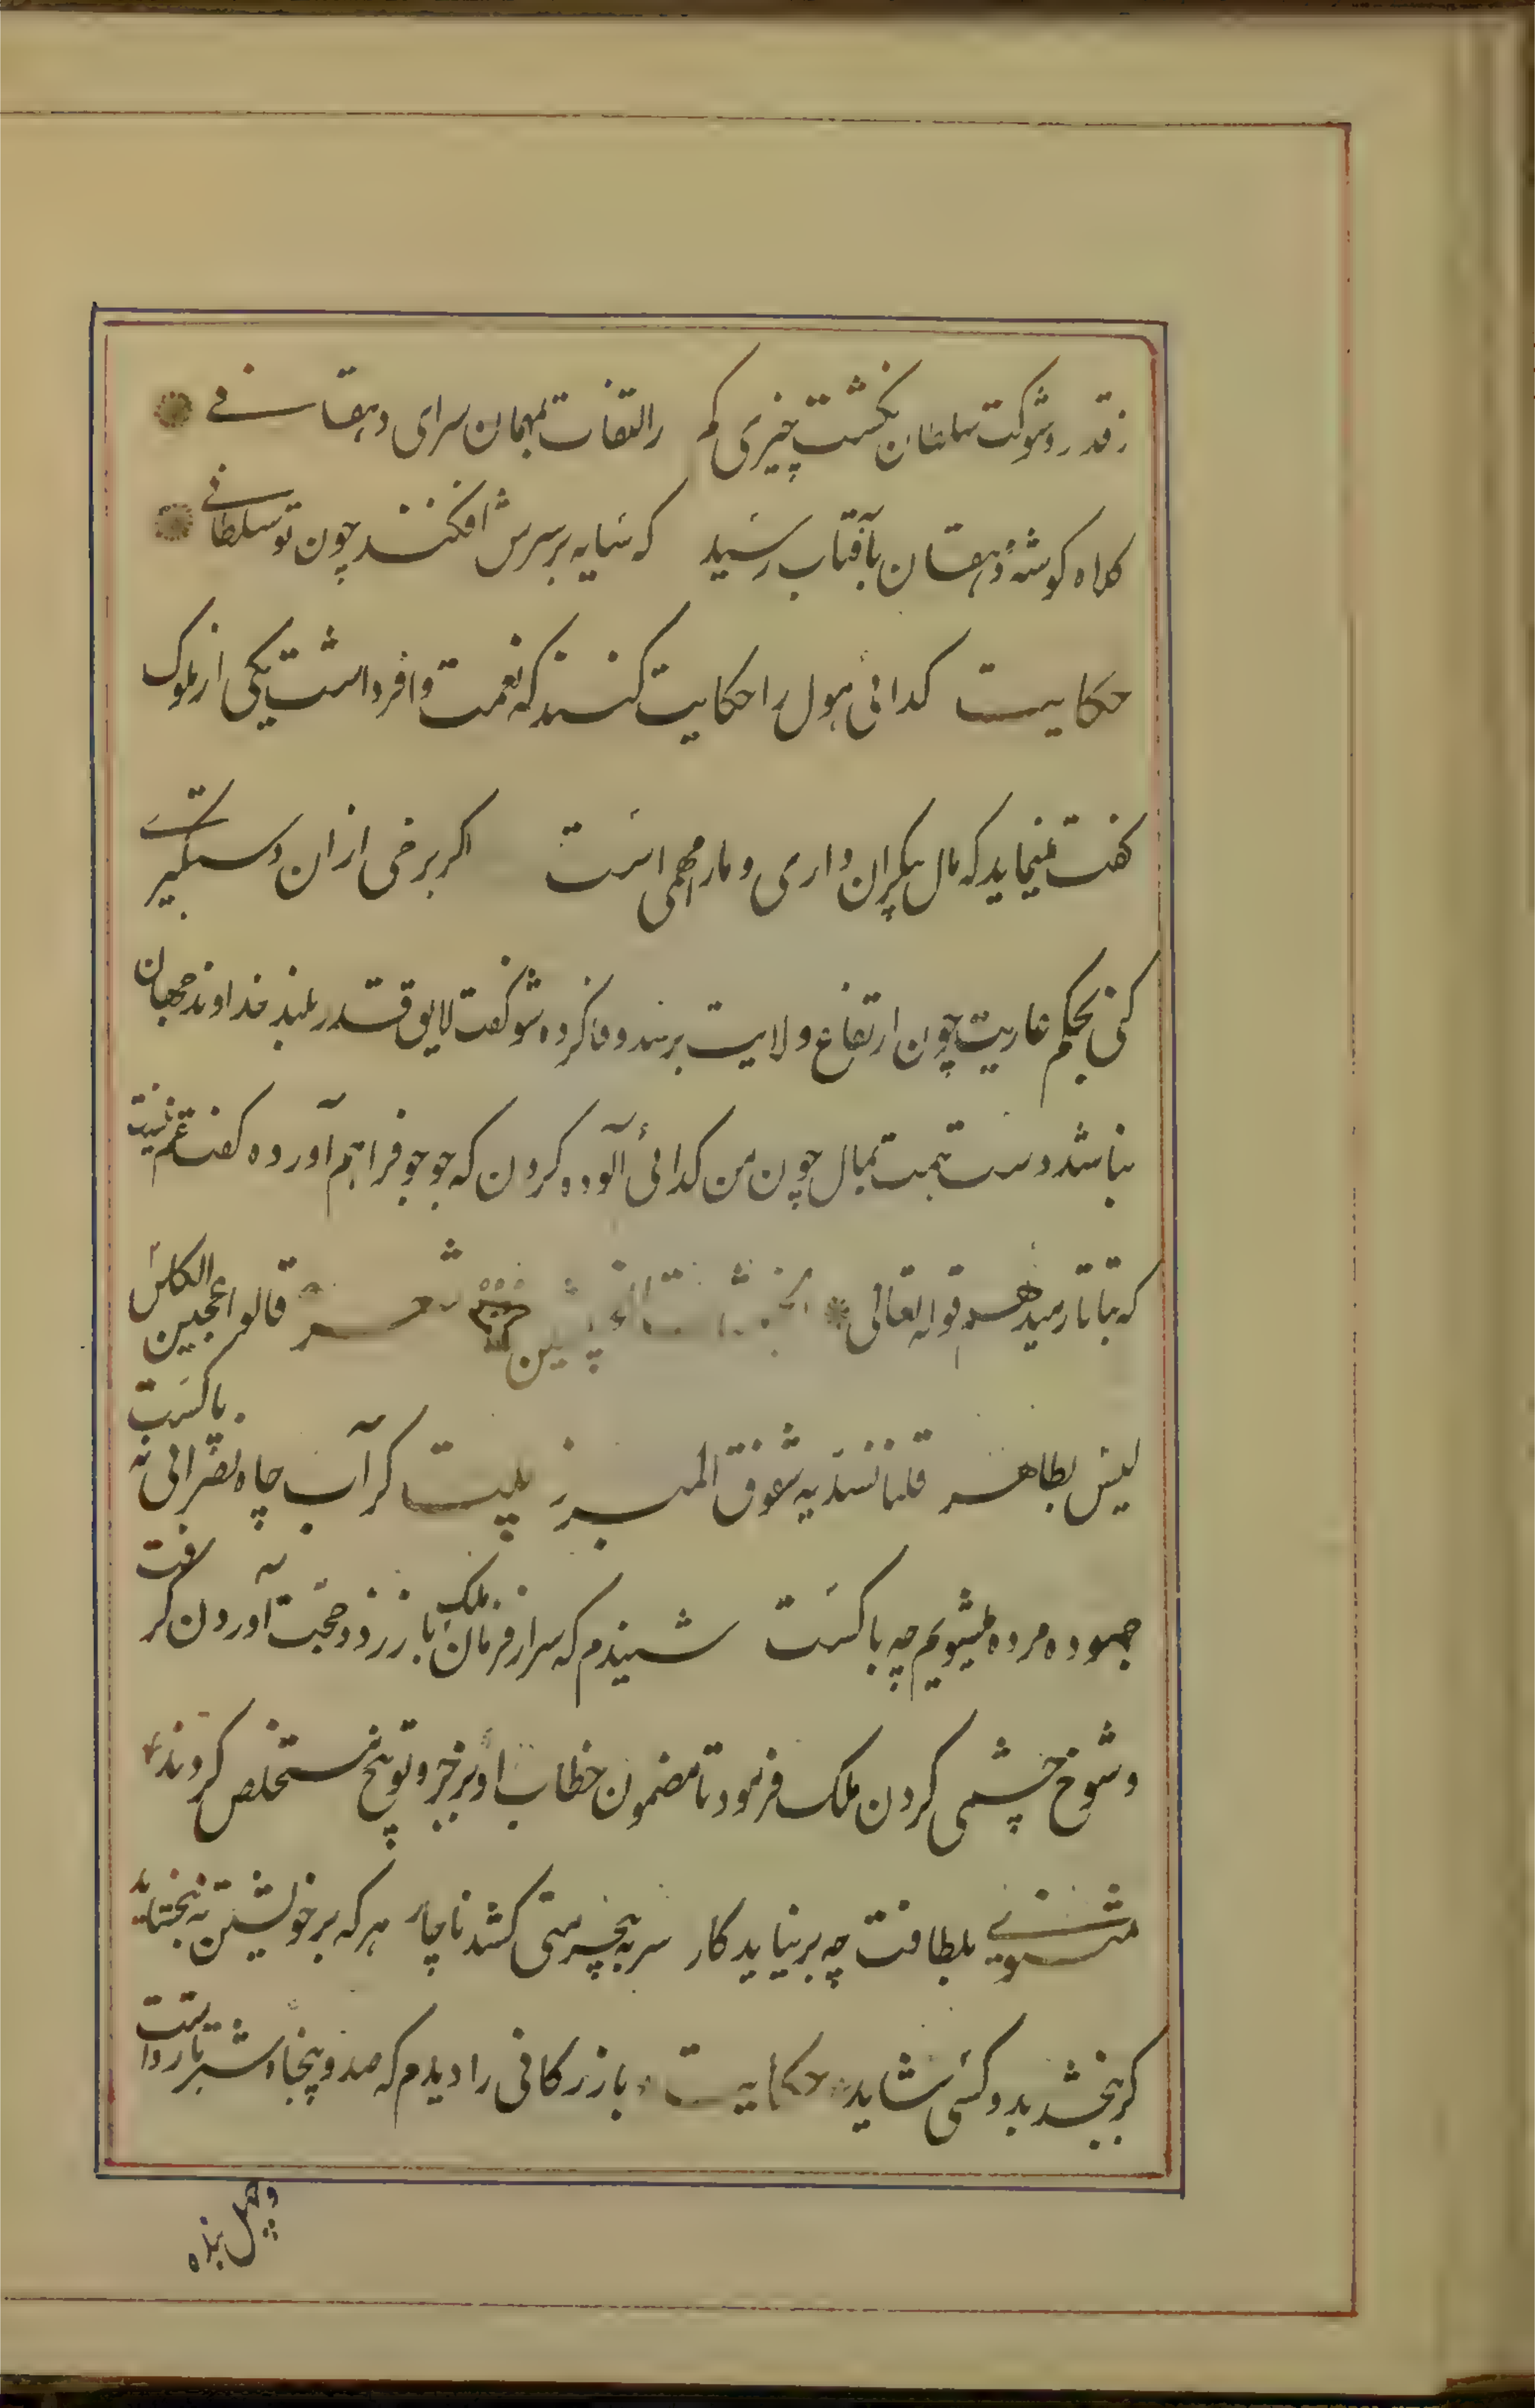 ز قدر و شوکت سلطان نکشت چیزی کم ز التفات بمهمان سرای دهقانے
کلاه کوشهٔ دهقان بآفتاب رسید که سایه بر سرش افکند چون تو سلطانے
حکایت کدائی هول را حکایت کنند که نعمت وافر داشت یکی از ملوک
کفت مینماید که مال بیکران داری و ما را مهمی است اکر برخی از ان دستکیرے
کنی بحکم عاریت چون ارتفاع ولایت برسد وفا کرده شو کفت لایق قدر بلند خداوند جهان
نباشد دست همت بمال چون من کدائی آلوده کردن که جو جو فراهم آورده کفت غم نیست
که بتاتار میدهم قوله تعالی الخبیثات للخبیثین شعر قالوا عجین الکلس
لیس بطاهر قلنا نسد به شقوق المبرز بیت کر آب چاه نصرانی نه پاکست
جهود مرده میشویم چه باکست شنیدم که سر از فرمان ملک باز زد و حجت آوردن کرفت
و شوخ چشمی کردن ملک فرمود تا مضمون خطاب او بزجر و توبیخ مستخلص کردند
مثنوی بلطافت چه بر نیاید کار سر به بیحرمتی کشد ناچار هر که بر خویشتن نه بخشاید
کر نبخشد بدو کسی شاید حکایت بازرکانی را دیدم که صد و پنجاه شتر بار داشت
و چهل بنده